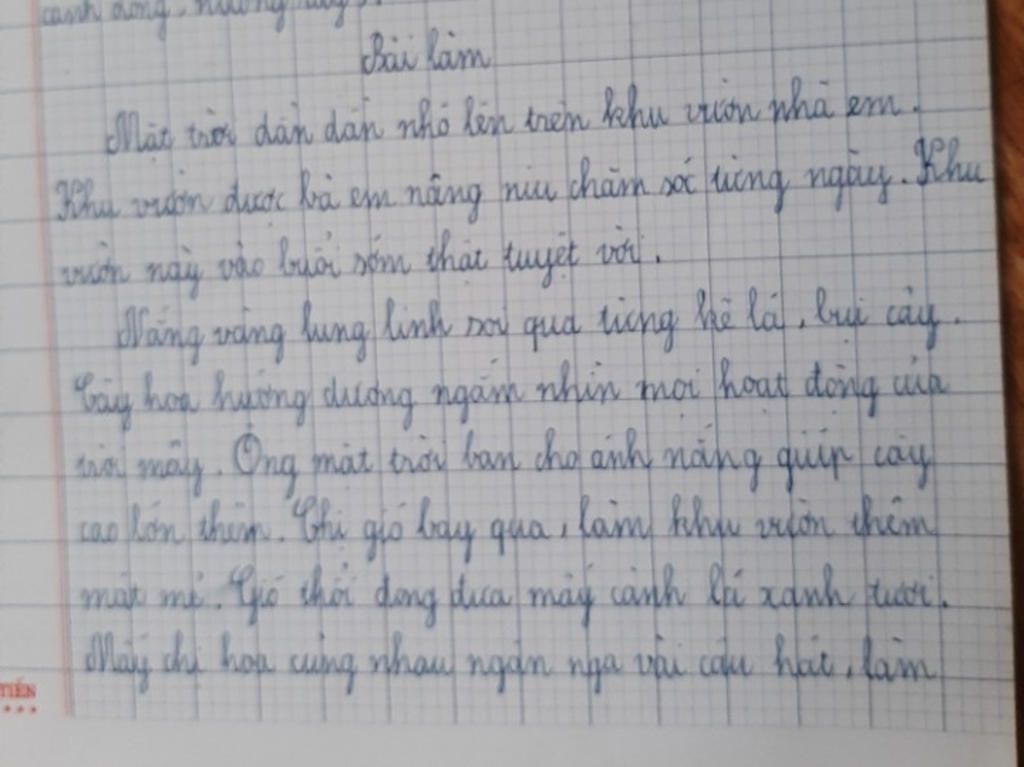 cánh đồng, nương rẫy).
Bài làm
Mặt trời dần dần nhô lên trên khu vườn nhà em.
Khu vườn được bà em nâng niu chăm sóc từng ngày. Khu
vườn này vào buổi sớm thật tuyệt vời.
Nắng vàng lung linh soi qua từng kẽ lá, bụi cây.
Cây hoa hướng dương ngắm nhìn mọi hoạt động của
trời mây. Ông mặt trời ban cho ánh nắng giúp cây
cao lớn thêm. Chị gió bay qua, làm khu vườn thêm
mát mẻ. Gió thổi đong đưa mấy cành lá xanh tươi.
Mấy chị hoa cùng nhau ngân nga vài câu hát, làm
TIẾN